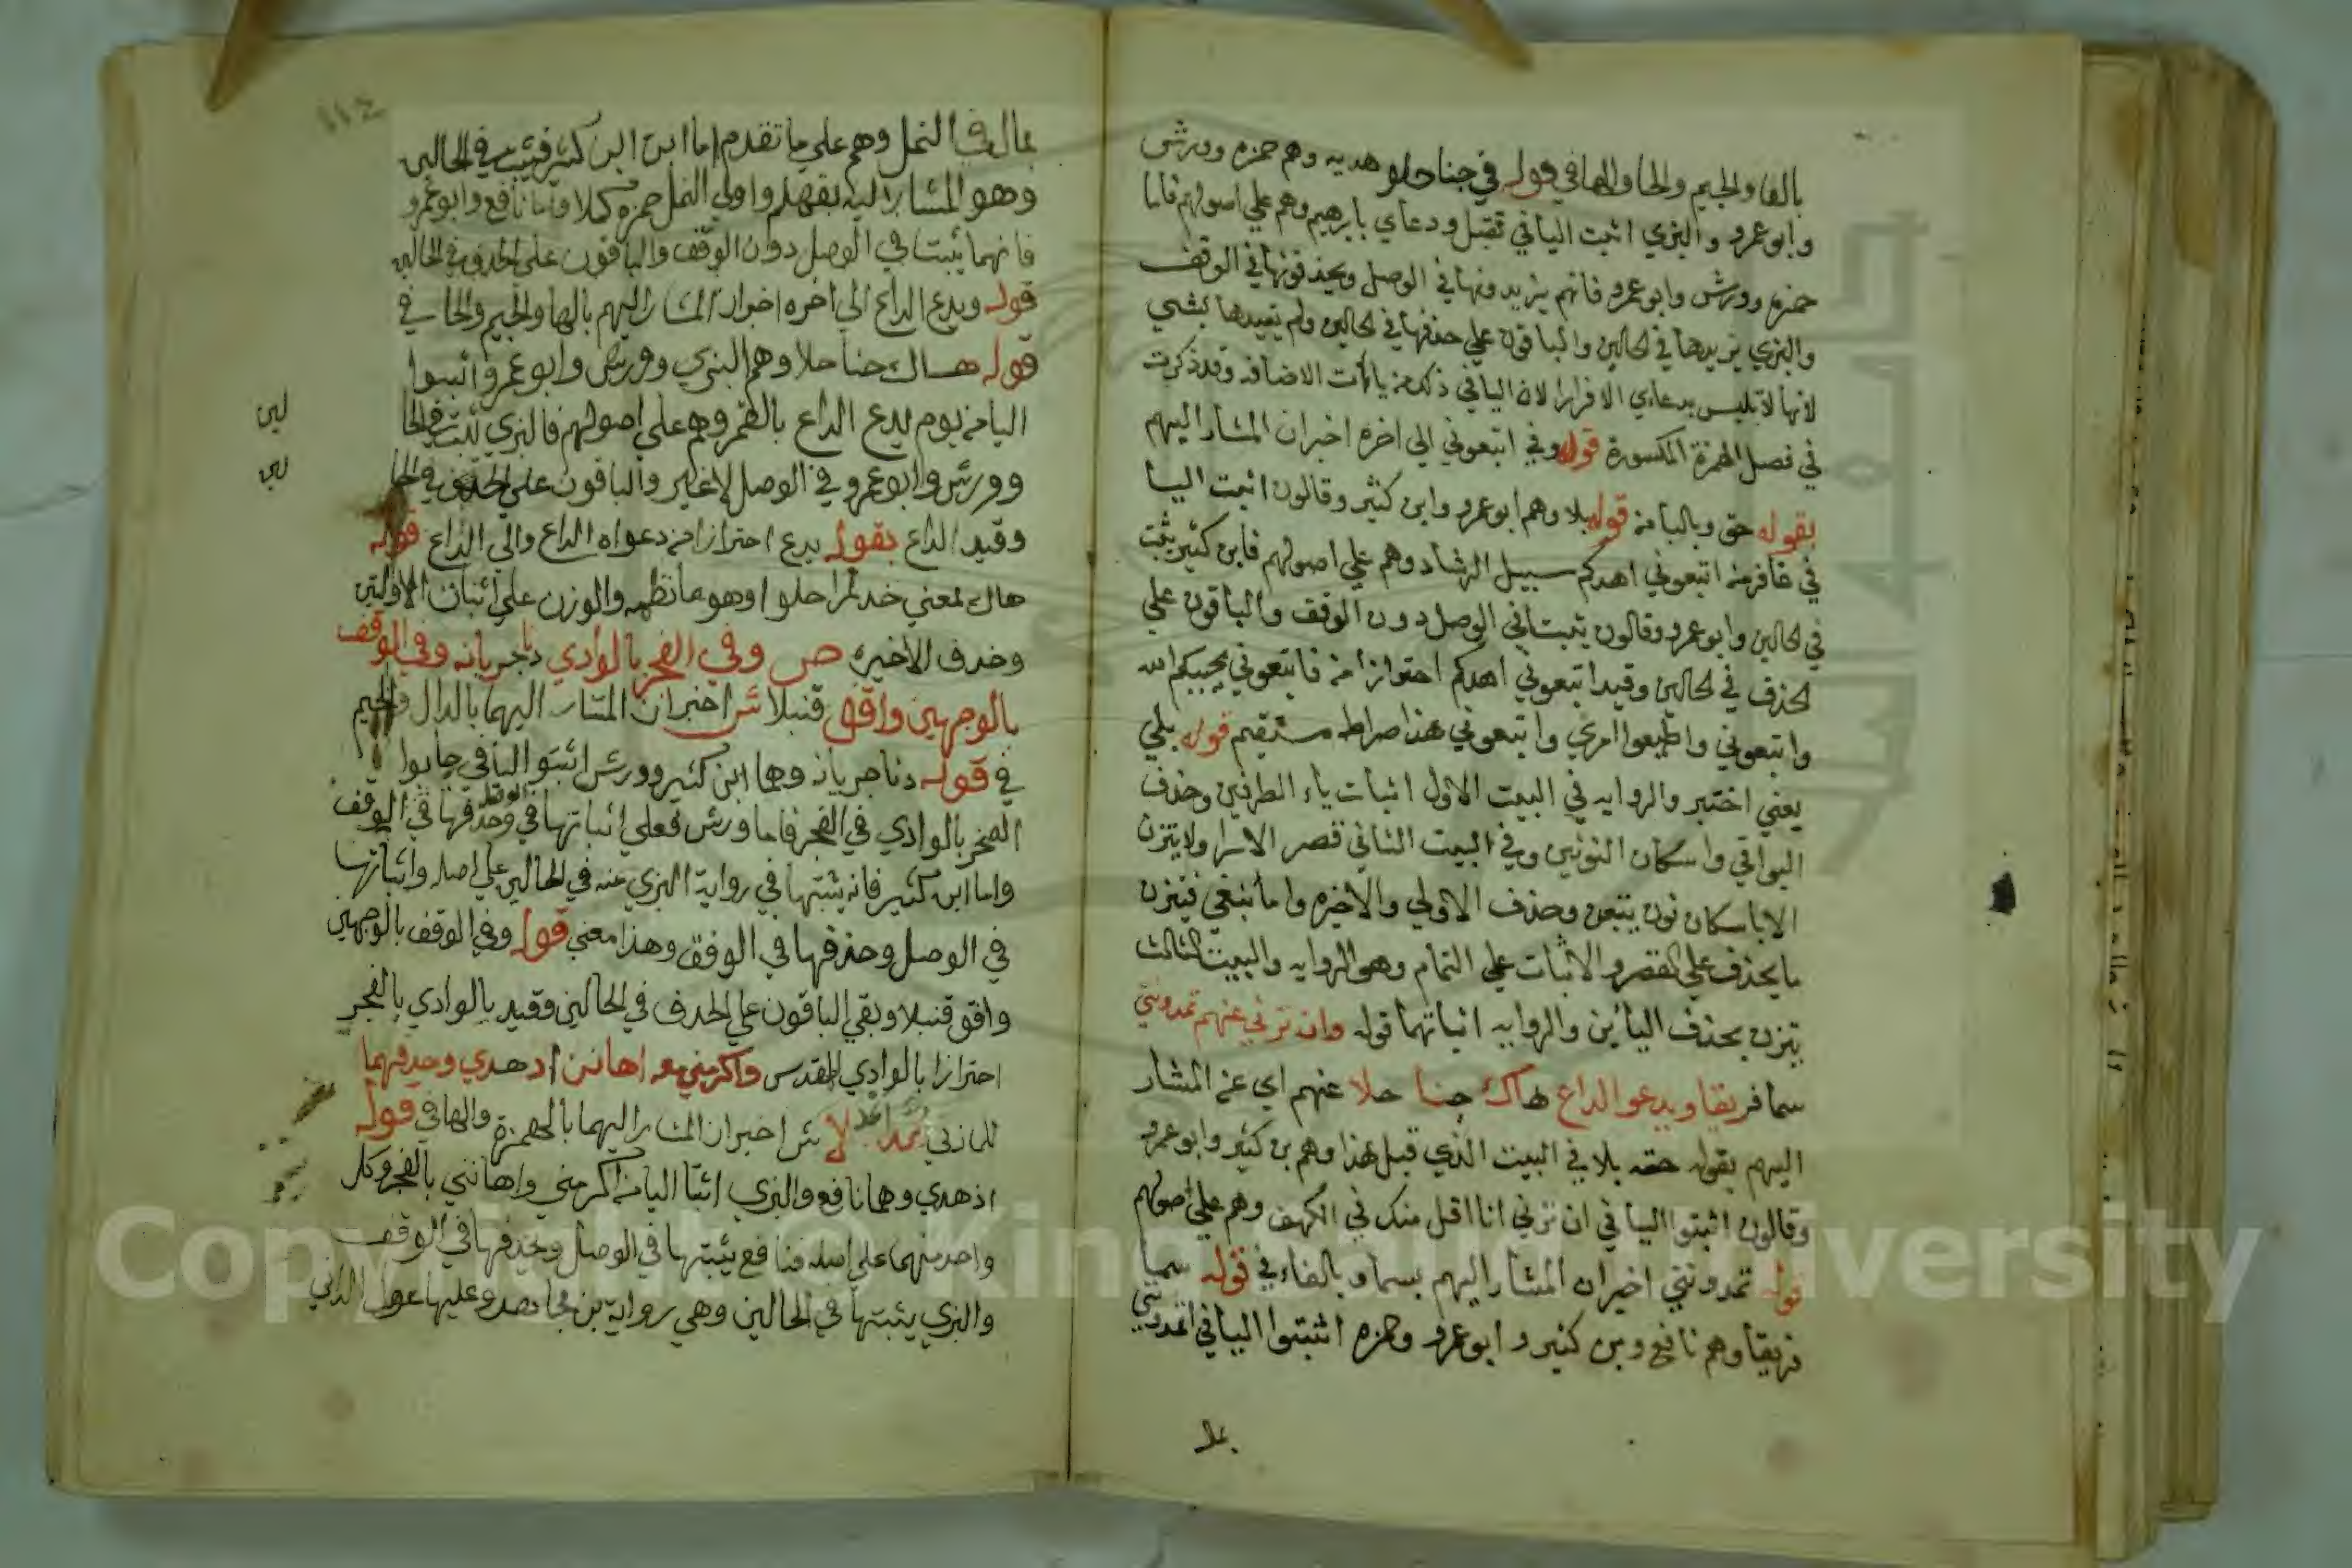 بالفا والجيم والحا والها في قوله في جنا حلو هديه وهم حمزه وورش
وابو عمرو والبزي اثبت اليا في تقبل ودعاي بابرهيم وهم علي اصولهم فاما
حمزه وورش وابو عمرو فانهم يزيدونها في الوصل ويحذفونها في الوقف
والبزي يزيدها في الحالين والباقون علي حذفها في الحالين ولم يقيدها بشي
لانها لا تلبس بدعاي الا فرارا لان اليا في ذلك من ياآت الاضافه وقد ذكرت
في فصل الهمزة المكسورة قوله وفي اتبعوني الي اخره اخبر ان المشار اليهم
بقوله حق وبالبا من قوله بلا وهم ابو عمرو وابن كثير وقالون اثبت اليا
في غافر من اتبعوني اهدكم سبيل الرشاد وهم علي اصولهم فابن كثير يثبت
في الحالين وابو عمرو وقالون يثبتا في الوصل دون الوقف والباقون علي
الحذف في الحالين وقيد اتبعوني اهدكم احترازا من فاتبعوني يحببكم الله
واتبعوني واطيعوا امري واتبعوني هذا صراط مستقيم قوله بلي
يعني اختبر والروايه في البيت الاول اثبات ياء الطرفين وحذف
البواقي واسكان النونين وفي البيت الثاني قصر الاسرا ولا يتزن
الا باسكان نون يتبعن وحذف الاولي والاخيره واما نبغي فيتزن
ما يحذف علي القصر والاثبات علي التمام وهو الروايه والبيت الثالث
يتزن بحذف اليائين والروايه اثباتهما قوله وان ترني عنهم تمدونني
سما فريقا ويدعو الداع هاك جنا حلا عنهم اي عن المشار
اليهم بقوله حقه بلا في البيت الذي قبل هذا وهم بن كثير وابو عمرو
وقالون اثبتوا اليا في ان ترني انا اقل منك في الكهف وهم علي اصولهم
قوله تمدونني اخبر ان المشار اليهم بسما وبالفاء في قوله سما
فريقا وهم نافع وبن كثير وابو عمرو وحمزه اثبتوا اليا في اتمدونني
بما
112
بمال في النمل وهم علي ما تقدم اما ابن كثير فيثبت في الحالين
وهو المشار اليه بقوله واولي النمل حمزه كملا واما نافع وابو عمرو
فانهما يثبتا في الوصل دون الوقف والباقون علي الحذف في الحالين
قوله ويدع الداع الي اخره اخبر ان المشار اليهم بالها والجيم والحا في
قوله هاك جنا حلا وهم البزي وورش وابو عمرو اثبتوا
اليا من يوم يدع الداع بالقمر وهم علي اصولهم فالبزي يثبت في الحا
لين
وورش وابو عمرو في الوصل لا غير والباقون علي الحذف في الحا
لين
وقيد الداع بقوله يدع احترازا من دعوه الداع والي الداع قوله
هاك بمعني خذ ثمرا حلوا وهو ما نظمه والوزن علي اثبات الاولتين
وحذف الاخيره ص وفي الفجر بالوادي دنا جريانه وفي الوقف
بالوجهين وافق قنبلا ش اخبر ان المشار اليهما بالدال والجيم
في قوله دنا جريانه وهما ابن كثير وورش اثبتوا اليا في جابوا
الصخر بالوادي في الفجر فاما ورش فعلي اثباتها في الوصل وحذفها في الوقف
واما ابن كثير فانه يثبتها في رواية البزي عنه في الحالين علي اصله واثباتها
في الوصل وحذفها في الوقف وهذا معني قوله وفي الوقف بالوجهين
وافق قنبلا وبقي الباقون علي الحذف في الحالين وقيد بالوادي بالفجر
احترازا بالوادي المقدس واكرمني معه اهانن اذ هدي وحذفهما
للمازني عد اعدلا ش اخبر ان المشار اليهما بالهمزة والها في قوله
اذ هدي وهما نافع والبزي اثبتا اليا من اكرمني واهانني بالفجر وكل
واحد منهما علي اصله فنافع يثبتها في الوصل ويحذفها في الوقف
والبزي يثبتها في الحالين وهي رواية بن مجاهد وعليها عول الداني
Copyright © King Saud University